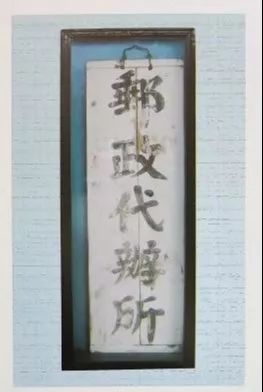 郵政代辦所